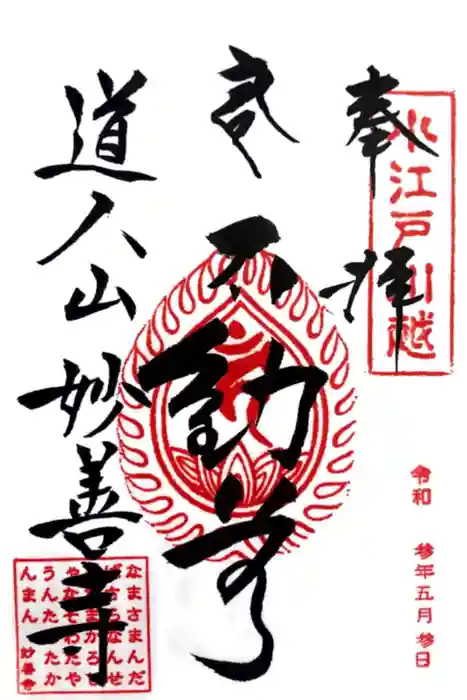 奉拝
小江戸川越
令和 參年五月參日
不動尊
道人山 妙善寺
なまさまんだ
ばさらなんせ
んだまかろし
やなそわたや
うんたらたか
んまん 妙善寺